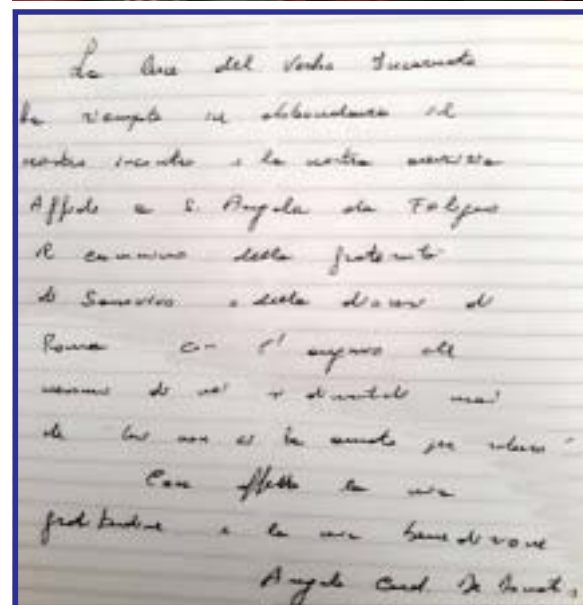 La luce del Verbo Incarnato
ha riempito in abbondanza il
nostro incontro e la nostra amicizia
Affido a S. Angela da Foligno
il cammino della fraternità
di Sansevero e della diocesi di
Roma con l' augurio che
nessuno di noi si dimentichi mai
che Lui non ci ha amato per scherzo
Con affetto la mia
gratitudine e la mia benedizione
Angelo Card. De Donatis